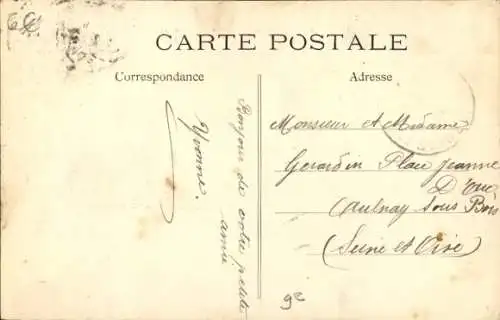 CARTE POSTALE
Correspondance
Adresse
Bonjour de votre petite
amie
Yvonne.
Monsieur et Madame
Gerardin Place Jeanne
D'arc
(aulnay sous Bois
(Seine et Oise)
9e